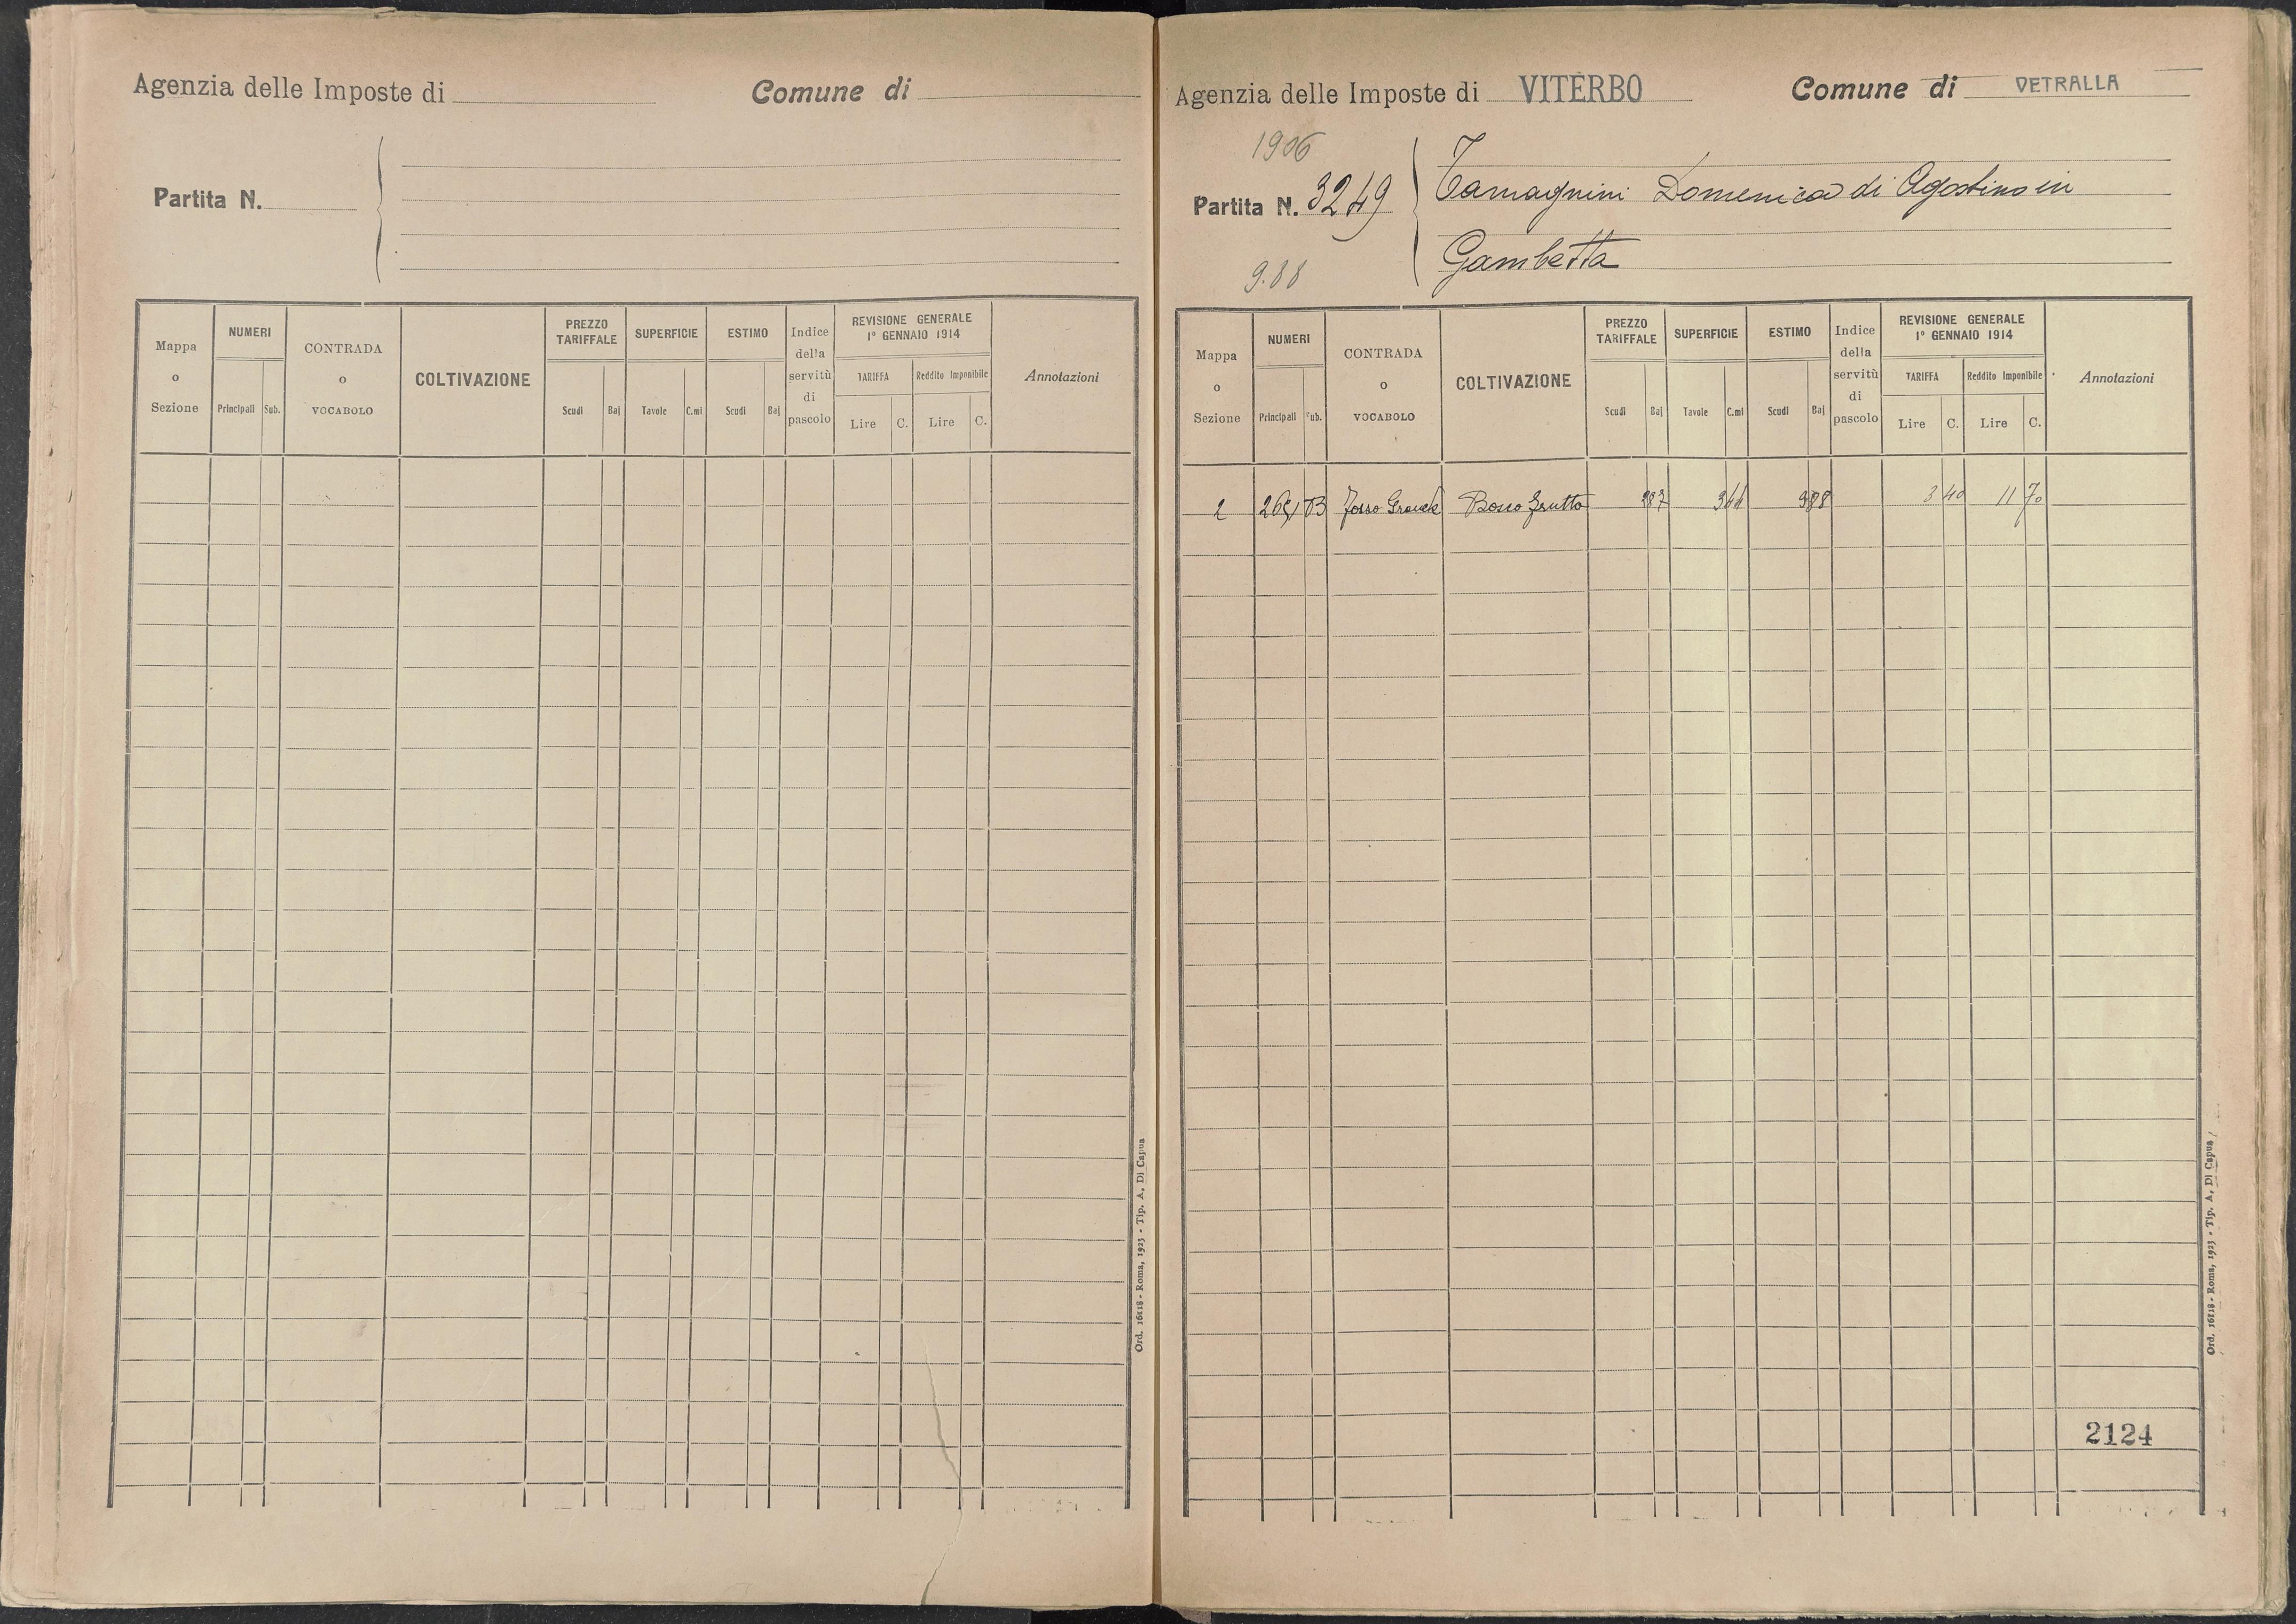 Agenzia delle Imposte di
Comune di
Partita N.
Mappa o Sezione
NUMERI
Principali Sub.
CONTRADA o VOCABOLO
COLTIVAZIONE
PREZZO TARIFFALE
Scudi Baj
SUPERFICIE
Tavole C.mi
ESTIMO
Scudi Baj
Indice della servitù di pascolo
REVISIONE GENERALE
1° GENNAIO 1914
TARIFFA
Lire C.
Reddito Imponibile
Lire C.
Annotazioni
Ord. 16118 - Roma, 1923 - Tip. A. Di Capua
Agenzia delle Imposte di VITERBO
Comune di VETRALLA
1906
Partita N. 3249
Tamagnini Domenica di Agostino in
Gambetta
9.88
Mappa o Sezione
NUMERI
Principali Sub.
CONTRADA o VOCABOLO
COLTIVAZIONE
PREZZO TARIFFALE
Scudi Baj
SUPERFICIE
Tavole C.mi
ESTIMO
Scudi Baj
Indice della servitù di pascolo
REVISIONE GENERALE
1° GENNAIO 1914
TARIFFA
Lire C.
Reddito Imponibile
Lire C.
Annotazioni
2 Fosso Grande Bosco frutto 287 344 988 3 40 11 70
2124
Ord. 16118 - Roma, 1923 - Tip. A. Di Capua